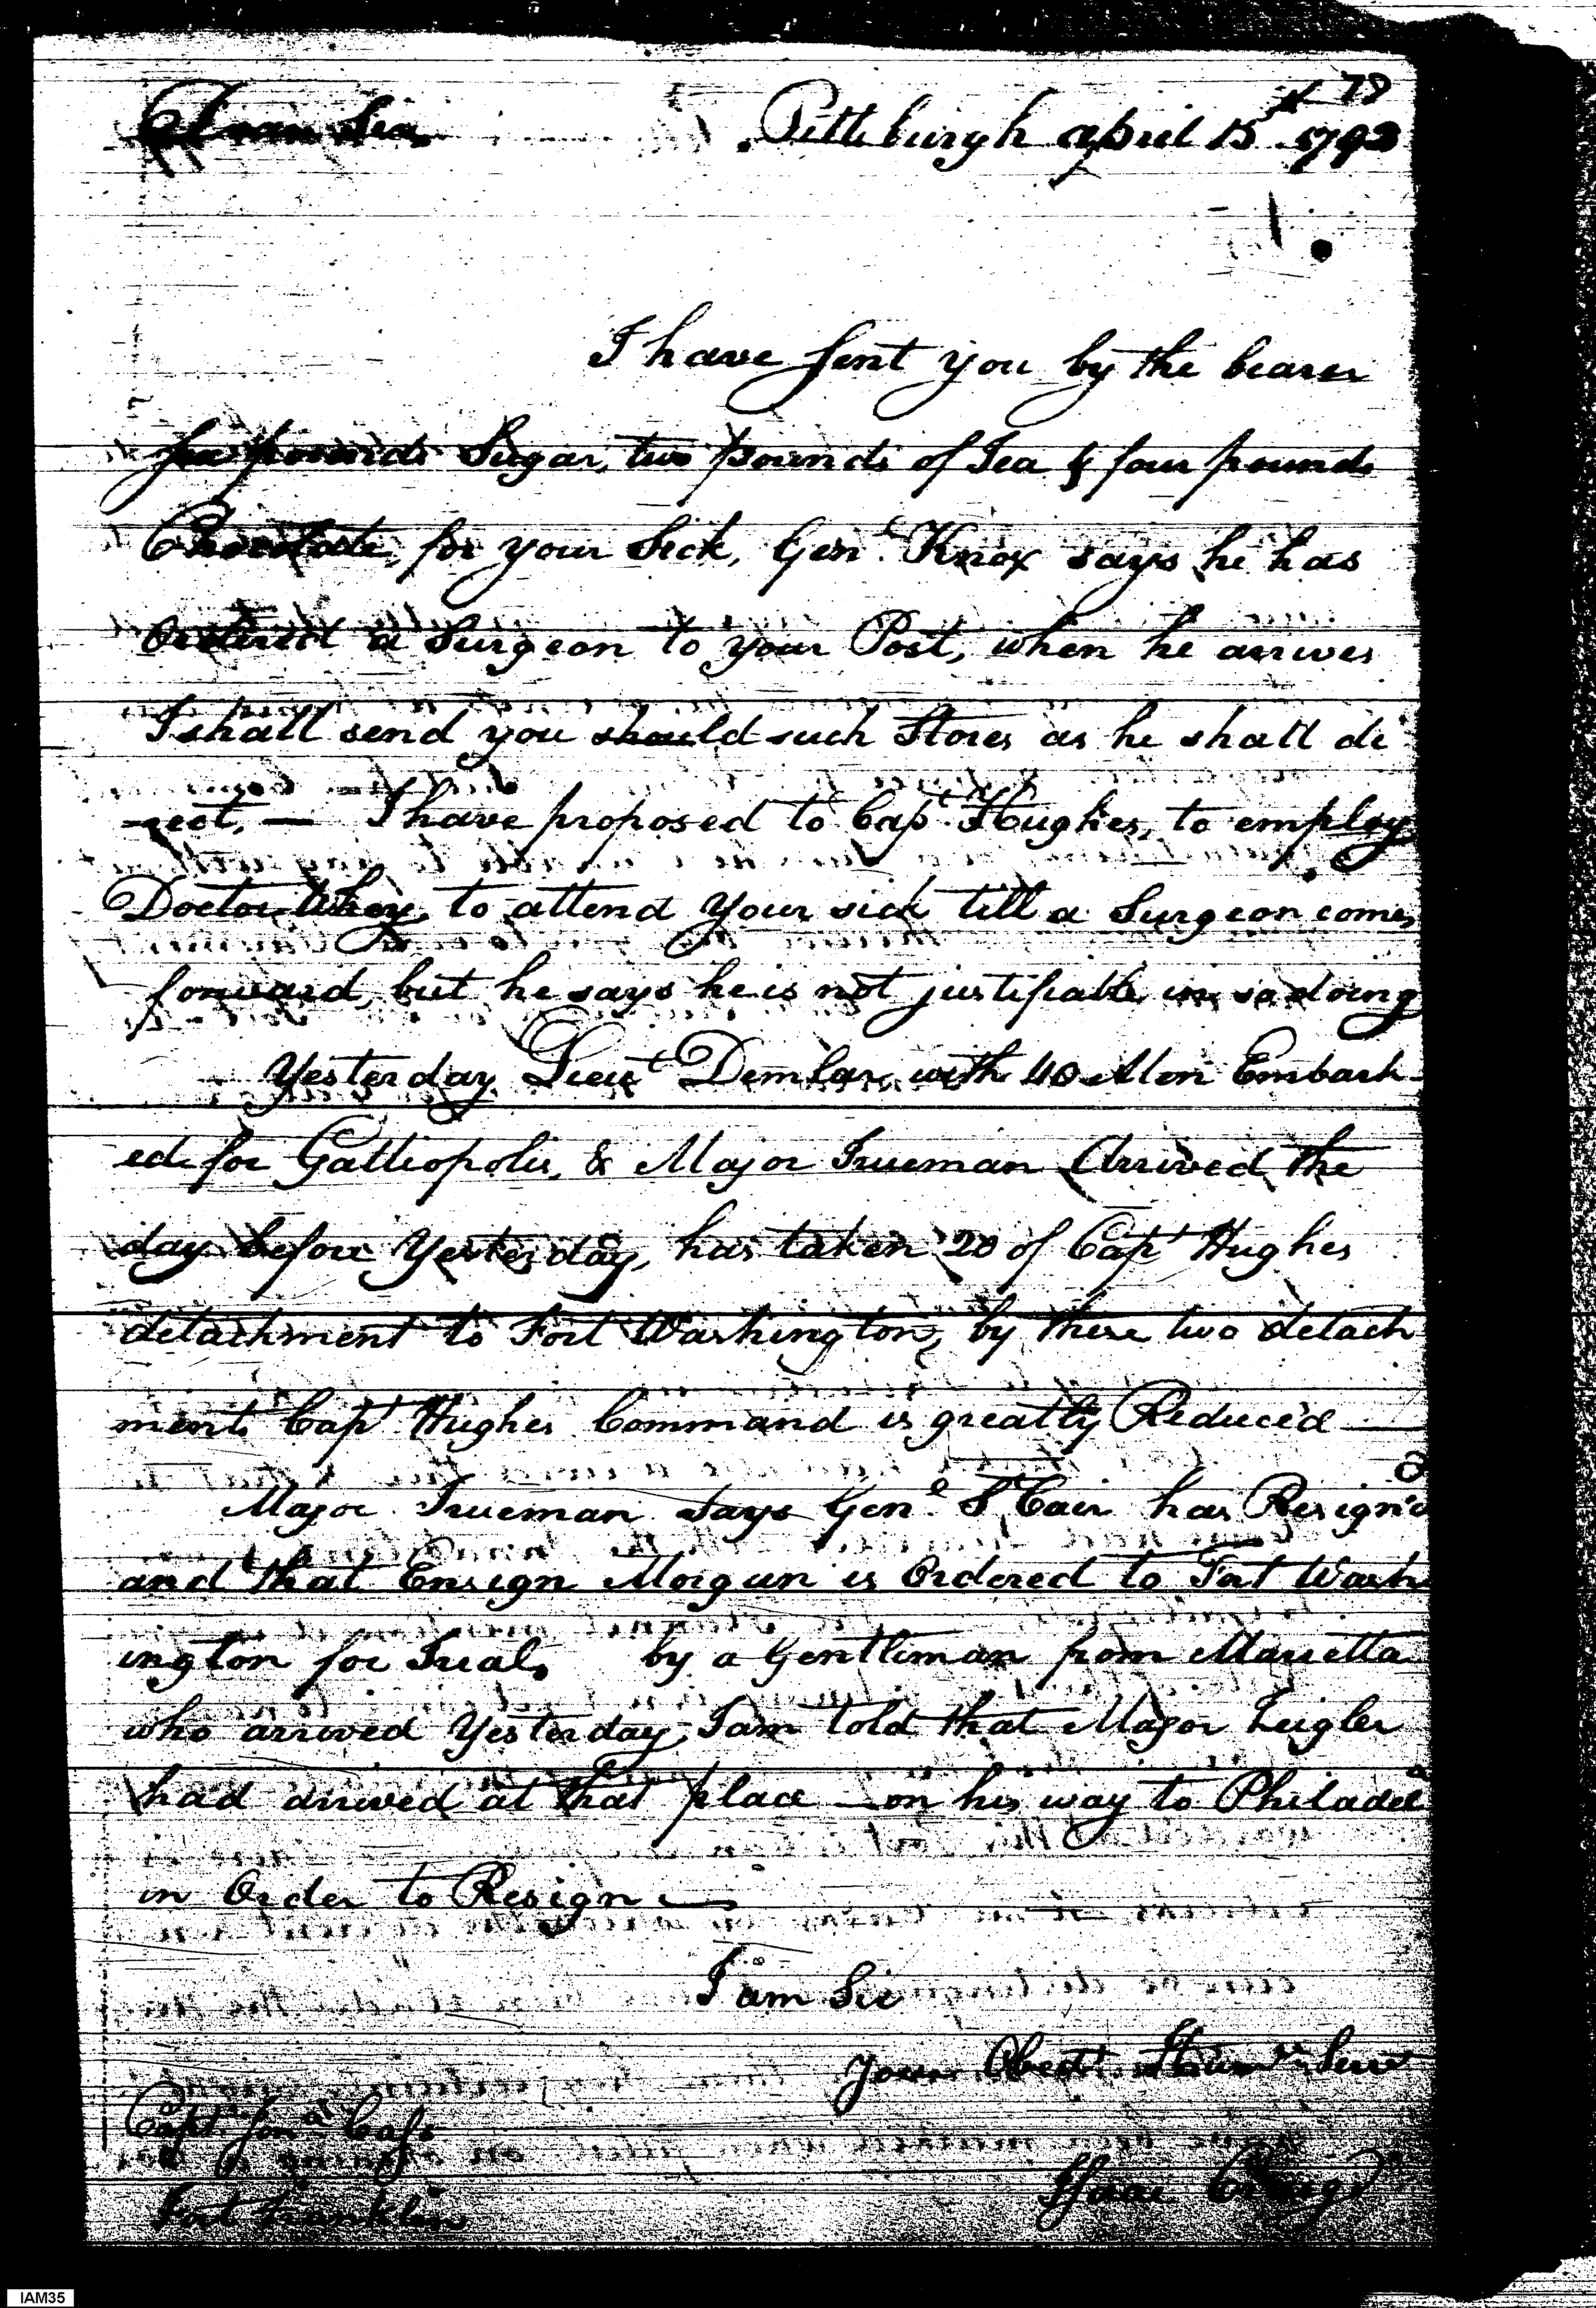 78
Dear Sir Pittsburgh April 15th 1792
I have sent you by the bearer
pounds Sugar, two pounds of Tea & four pounds
Chocolate, for your Sick, Genl Knox says he has
Ordered a Surgeon to your Post, when he arrives
I shall send you should such Stores as he shall di
-rect. — I have proposed to Capt Hughes, to employ
Doctor to attend your sick till a Surgeon comes
forward, but he says he is not justifiable in so doing
Yesterday Lieut Demlar with 40 Men Embark-
ed for Galliopolis, & Major Trueman Arrived the
day before Yesterday, has taken 20 of Capt Hughes
detachment to Fort Washington, by these two detach
ments Capt Hughes Command is greatly Reduced —
Major Trueman Says Genl St Cair has Resign'd
and that Ensign Morgan is Ordered to Fort Wash
ington for Trial, by a Gentleman from Marietta
who arrived Yesterday, I am told that Major Zeigler
had arrived at that place — on his way to Philadela
in Order to Resign —
I am Sir
Your Obedt Humle Serv
Capt. Jonan Cass
Isaac Craig
Fort Franklin
IAM35